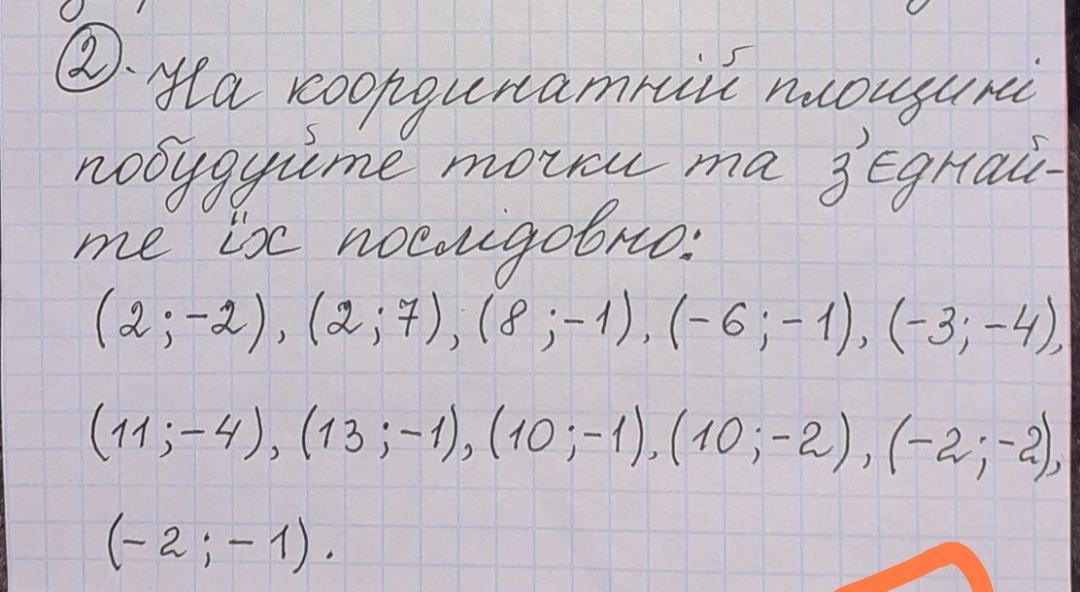 2. На координатній площині
побудуйте точки та з'єднай-
те їх послідовно:
(2;-2), (2;7), (8;-1), (-6;-1), (-3;-4),
(11;-4), (13;-1), (10;-1), (10;-2), (-2;-2),
(-2;-1).